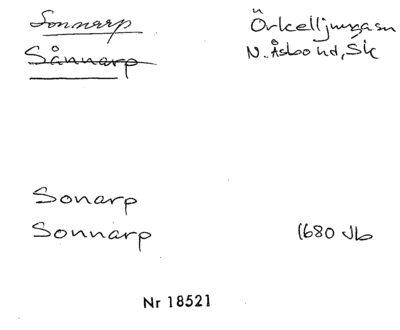 Sonnarp Örkelljungasn
Sånnarp N. Åsbo hd, Sk
Sonarp
Sonnarp 1680 Jb
Nr 18521